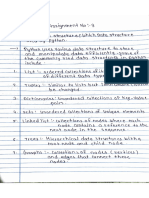 Assignment No:-3
structure? Which Data structure
using Python.
Python uses various data structure to store
and manipulate data efficiently. Some of
the commonly used data structures in Python
include
List : ordered collections of
of different data types
Tuples : Similar to lists but immutable
Dictionaries : Unordered collections of key-value
pair.
Sets : Unordered collections of unique elements
Linked list : Collections of nodes where each
node contains a reference to the
next node in the sequence
Trees : Hierarchical data structure with
root node and child node
Graphs : Collections of nodes (vertices)
and edges that connect these
nodes